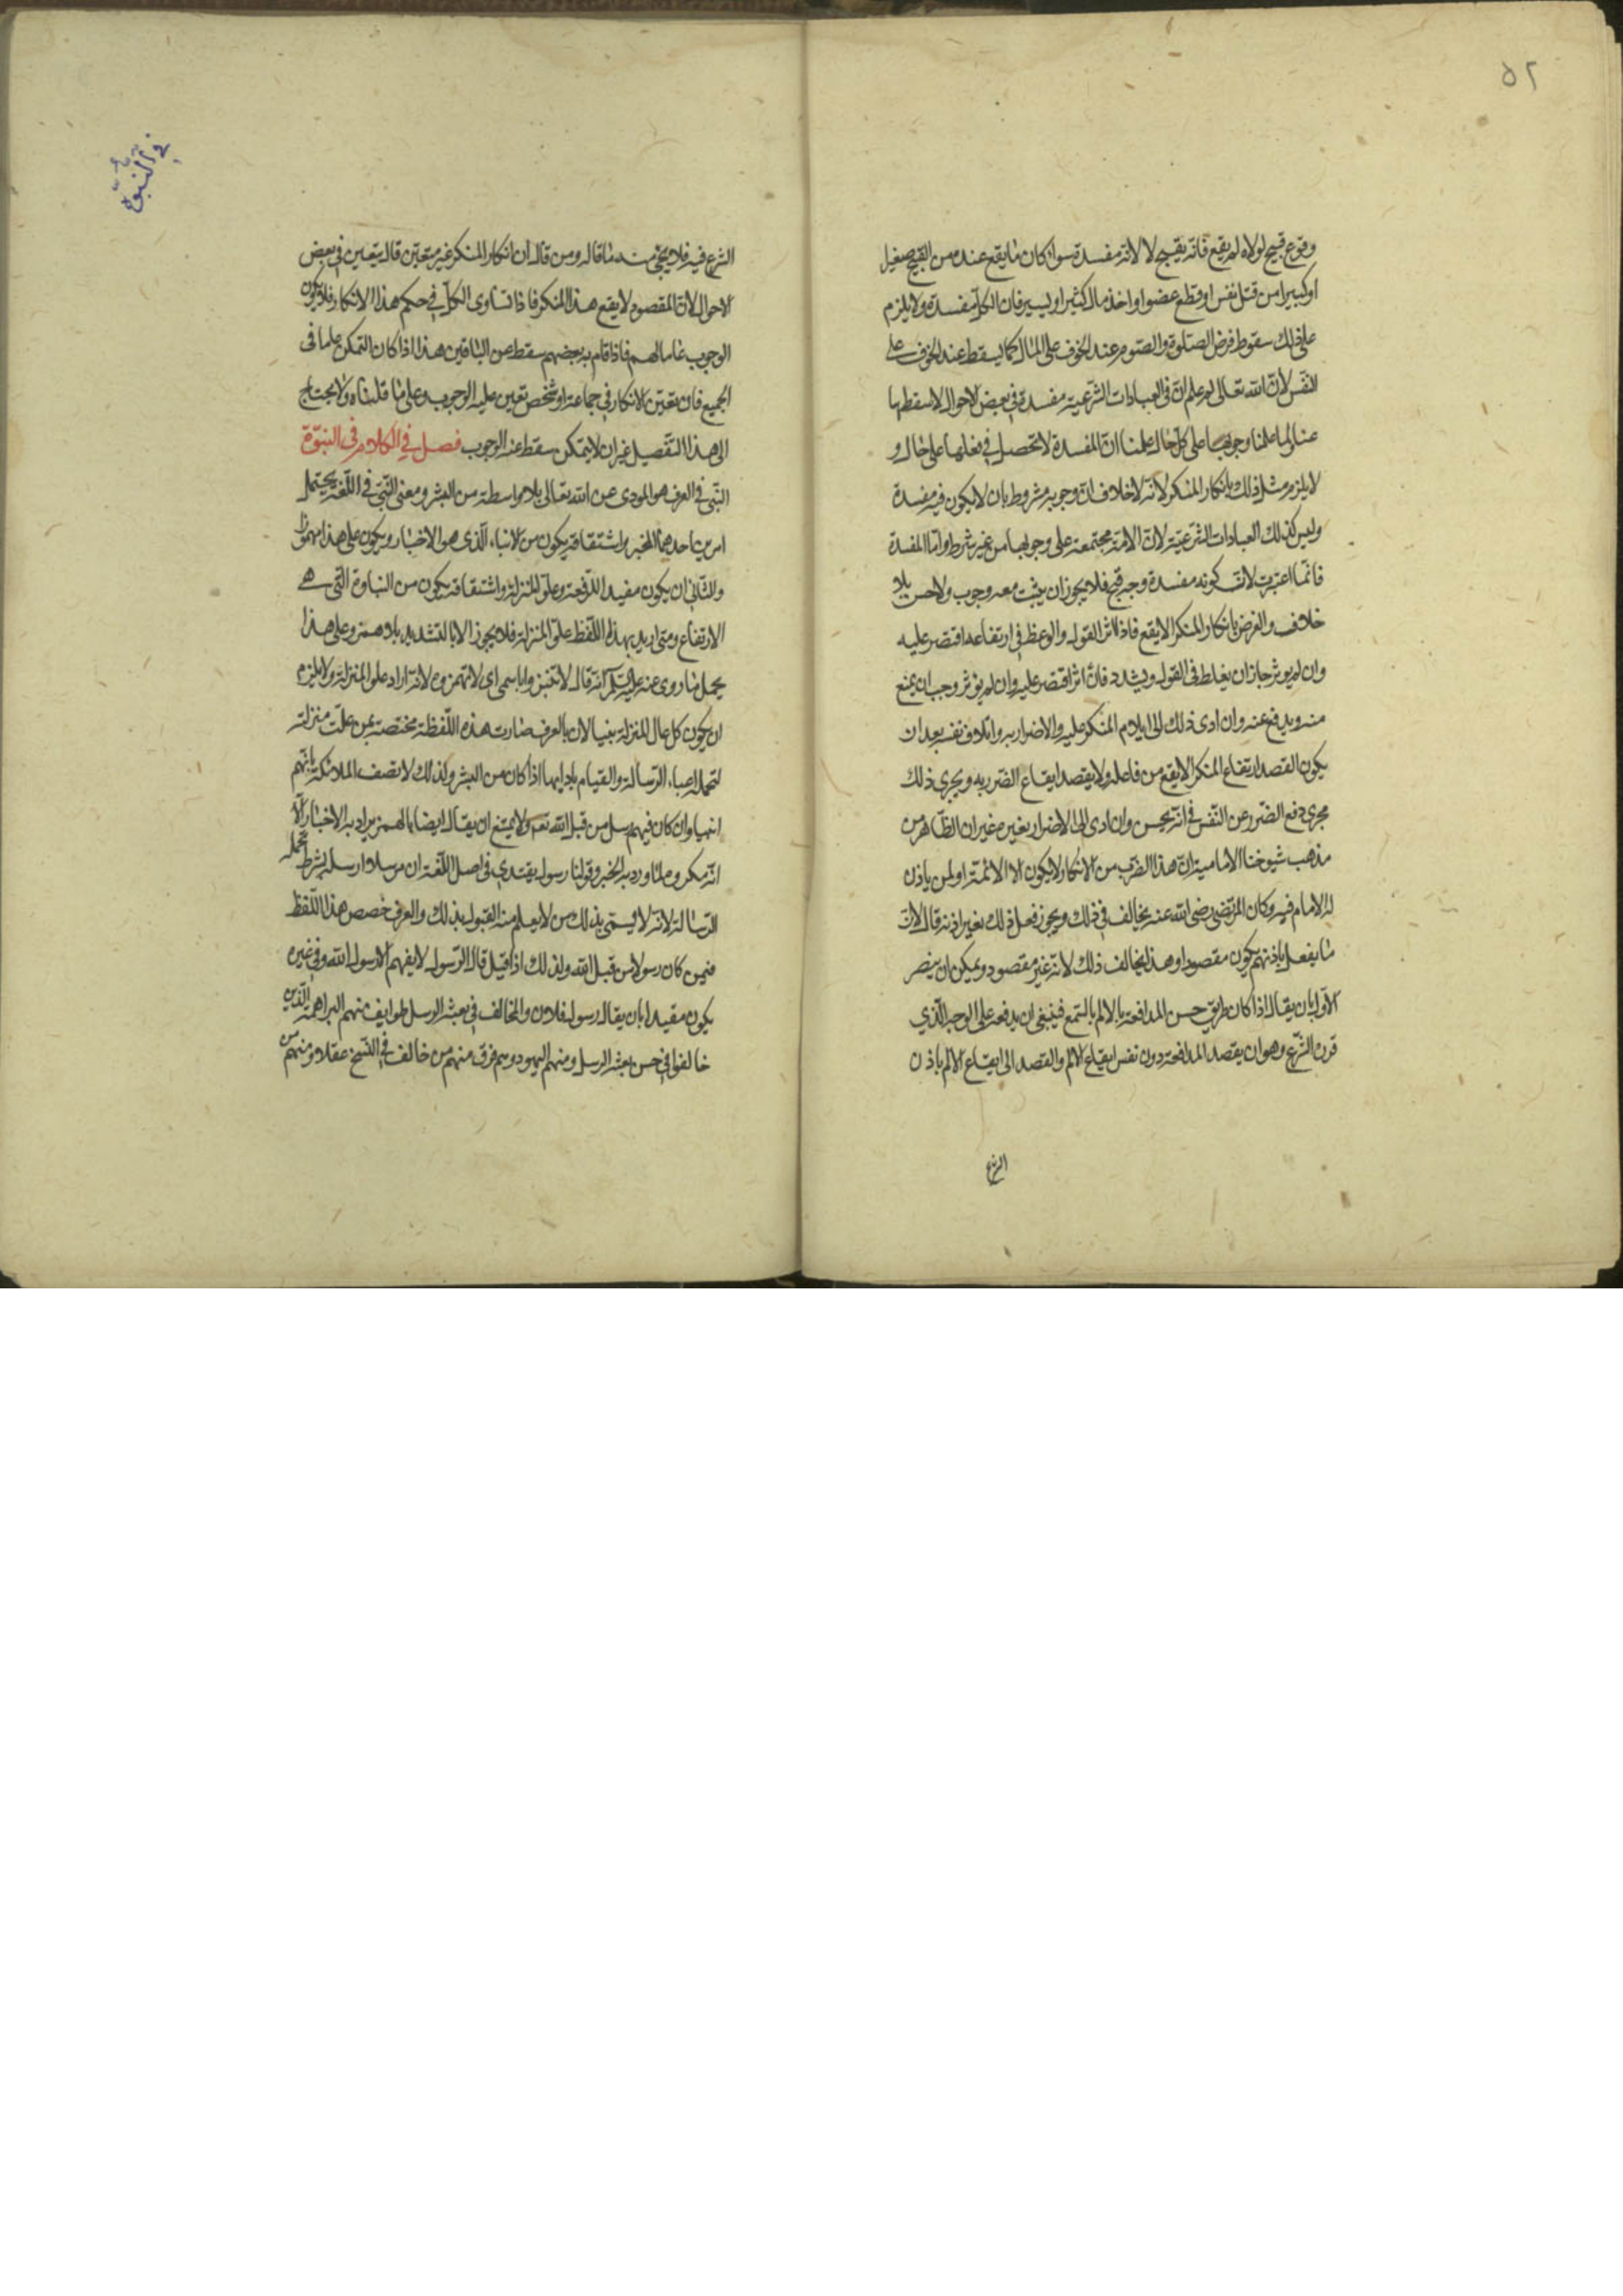 ٥٢
وقوع قبيح لولاه لم يقع فانه يقبح لا لانه مفسدة سوا كان ما يقع عنده من القبح صغيرا
او كبيرا من قتل نفس او قطع عضو او اخذ مال كثير او يسير فان الكل مفسدة ولا يلزم
على ذلك سقوط فرض الصلوة والصوم عند الخوف على المال كما يسقط عند الخوف على
النفس لأن الله تعالى لو علم ان في العبادات الشرعية مفسدة في بعض الاحوال لاسقطها
عنا لما علمنا وجوبها على كل حال علمنا ان المفسدة لا تحصل في فعلها على حال و
لا يلزم مثل ذلك بانكار المنكر لانه لا خلاف ان وجوبه مشروط بان لا يكون فيه مفسدة
وليس كذلك العبادات الشرعية لان الامة مجتمعة على وجوبها من غير شرط واما المفسدة
فانما اعتبرت لان كونه مفسدة وجه قبح فلا يجوز ان يثبت معه وجوب ولا حسن بلا
خلاف والغرض بانكار المنكر الا يقع فاذا اثر القول والوعظ في ارتفاعه اقتصر عليه
وان لم يوثر جاز ان يغلظ في القول ويشدد فان اثر اقتصر عليه وان لم يوثر وجب ان يمنع
منه ويدفع عنه وان ادى ذلك الى ايلام المنكر عليه والاضرار به واتلاف نفسه بعد ان
يكون القصد ارتفاع المنكر الا يقع من فاعله ولا يقصد ايقاع الضرر به ويجري ذلك
مجرى دفع الضرر عن النفس في انه يحسن وان ادى الى الاضرار بغيره غير ان الظاهر من
مذهب شيوخنا الامامية ان هذا الضرب من الانكار لا يكون الا الائمة او لمن ياذن
له الامام فيه وكان المرتضى رضي الله عنه يخالف في ذلك ويجوز فعل ذلك بغير اذنه قال لان
ما يفعل باذنهم يكون مقصودا وهذا يخالف ذلك لانه غير مقصود ويمكن ان ينصر
الاول بان يقال اذا كان طريق حسن المدافعة بالالم بالسمع فينبغي ان يدفعه على الوجه الذي
قرره الشرع وهو ان يقصد المدافعة دون نفس ايقاع الالم والقصد الى ايقاع الالم باذن
الشرع
في النبوة
الشرع فيه فلا يجئ منه ما قاله ومن قال ان انكار المنكر غير متعين قال يتعين في بعض
الاحوال لان المقصود لا يقع هذا المنكر فاذا تساوى الكل في حكم هذا الانكار فلا يكون
الوجوب عاما لهم فاذا قام به بعضهم سقط عن الباقين هذا اذا كان التمكن علما في
الجميع فان تعين الانكار في جماعة او شخص تعين عليه الوجوب وعلى ما قلناه لا يحتاج
الى هذا التفصيل غير ان لا يتمكن سقط عنه الوجوب فصل في الكلام في النبوة
النبي في العرف هو المودى عن الله تعالى بلا واسطة من البشر ومعنى النبي في اللغة يحتمل
امرين احدهما المخبر واشتقاقه يكون من الانباء الذي هو الاخبار ويكون على هذا مهموزا
والثاني ان يكون مفيدا للرفعة وعلو المنزلة واشتقاقه يكون من النباوة التي هي
الارتفاع ومتى اريد بهذا اللفظ علو المنزلة فلا يجوز الا بالتشديد بلا همز وعلى هذا
يحمل ما روى عنه عليه السلم انه قال لا تنبزوا باسمى اى لا تهمزوه لانه اراد علو المنزلة ولا يلزم
ان يكون كل عال المنزلة نبيا لان بالعرف صارت هذه اللفظة مختصة بمن علت منزلته
لتحمله اعباء الرسالة والقيام بادايها اذا كان من البشر ولذلك لا تصف الملائكة بانهم
انبيا وان كان فيهم رسل من قبل الله تعه ولا يمتنع ان يقال ايضا بالهمز يراد به الاخبار الا
انه مكروه لما ورد به الخبر وقولنا رسول يقتدي في اصل اللغة ان مرسلا ارسله بشرط تحمله
الرسالة لانه لا يسمى بذلك من لا يعلم منه القبول بذلك والعرف خصص هذا اللفظ
فيمن كان رسولا من قبل الله ولذلك اذا قيل قال الرسول لا يفهم الا رسول الله وفي غيره
يكون مقيدا بان يقال رسول فلان والمخالف في بعثة الرسل طوايف منهم البراهمة الذين
خالفوا في حسن بعثة الرسل ومنهم اليهود وهم فرق منهم من خالف في النسخ عقلا ومنهم من